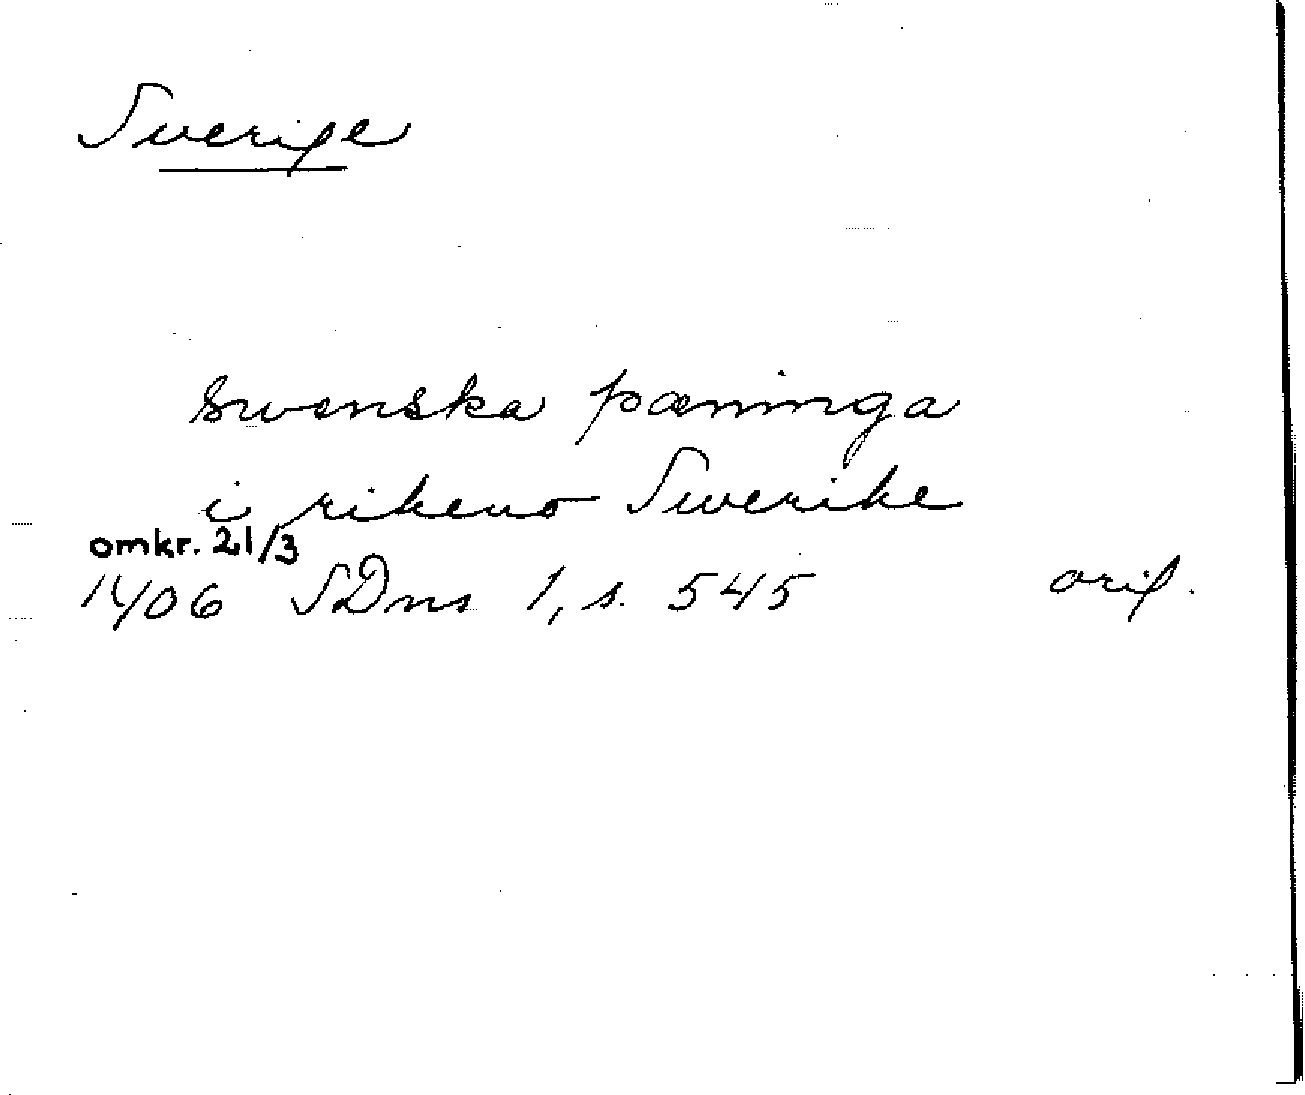 Sverige
swenska pæninga
i rikeno Swerike
omkr. 21/3
1406 SDns 1, s. 545 orig.